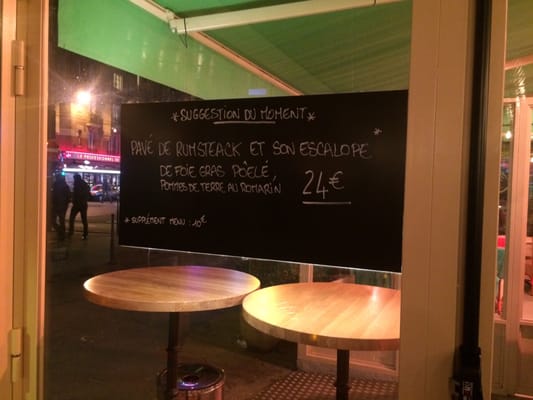 *SUGGESTION DU MOMENT*
*
PAVÉ DE RUMSTEACK ET SON ESCALOPE
DE FOIE GRAS POÊLÉ,
POMMES DE TERRE AU ROMARIN
24€
* SUPPLÉMENT MENU : 10€